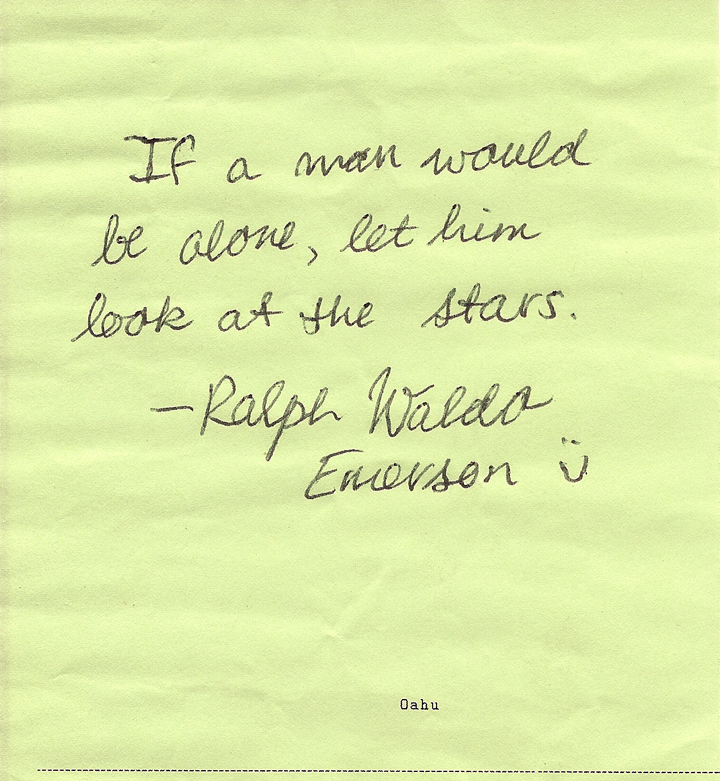 If a man would
be alone, let him
look at the stars.
—Ralph Waldo
Emerson
Oahu